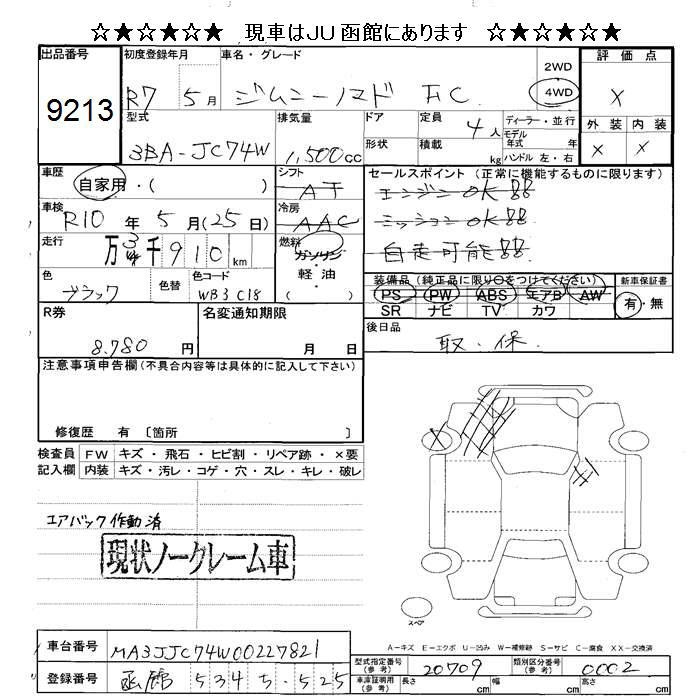 ☆★☆★☆★ 現車はJU函館にあります ☆★☆★☆★
出品番号
9213
初度登録年月
R7 5月
車名・グレード
ジムニーノマド FC
2WD
4WD
評価点
×
外装 内装
× ×
型式
3BA-JC74W
排気量
1,500cc
ドア
形状
定員
4人
積載
kg
ディーラー・並行
モデル
年式 年
ハンドル 左・右
車歴
自家用・( )
シフト
AT
セールスポイント(正常に機能するものに限ります)
エンジンOK
ミッションOK
自走可能
車検
R10年5月(25日)
冷房
AAC
走行
万3千910km
燃料
ガソリン
軽油
( )
色
ブラック
色替
色コード
WB3 C18
装備品(純正品に限り○をつけてください)
PS PW ABS エアB AW
SR ナビ TV カワ
新車保証書
有・無
R券
8,780円
名変通知期限
月 日
後日品
取・保
注意事項申告欄(不具合内容等は具体的に記入して下さい)
修復歴 有 〔箇所 〕
検査員
記入欄
FW キズ・飛石・ヒビ割・リペア跡・×要
内装 キズ・汚レ・コゲ・穴・スレ・キレ・破レ
エアバック作動済
現状ノークレーム車
スペア
A-キズ E-エクボ U-凹み W-補修跡 S-サビ C-腐食 XX-交換済
車台番号
MA3JJC74W00227821
登録番号
函館 534 ち ・525
型式指定番号
(参考)
20709
類別区分番号
(参考)
0002
車庫証明用
(参考)
長さ cm
幅 cm
高さ cm